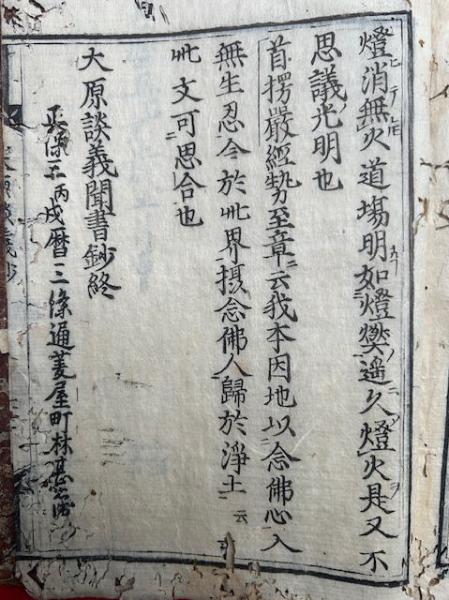 燈消無火道場明如燈樊遥久燈火是又不
思議光明也
首楞嚴經勢至章云我本因地以念佛心入
無生忍今於此界摂念佛人歸於淨土云云
此文可思合也
大原談義聞書鈔終
正保三丙戌暦三條通菱屋町林甚右衛